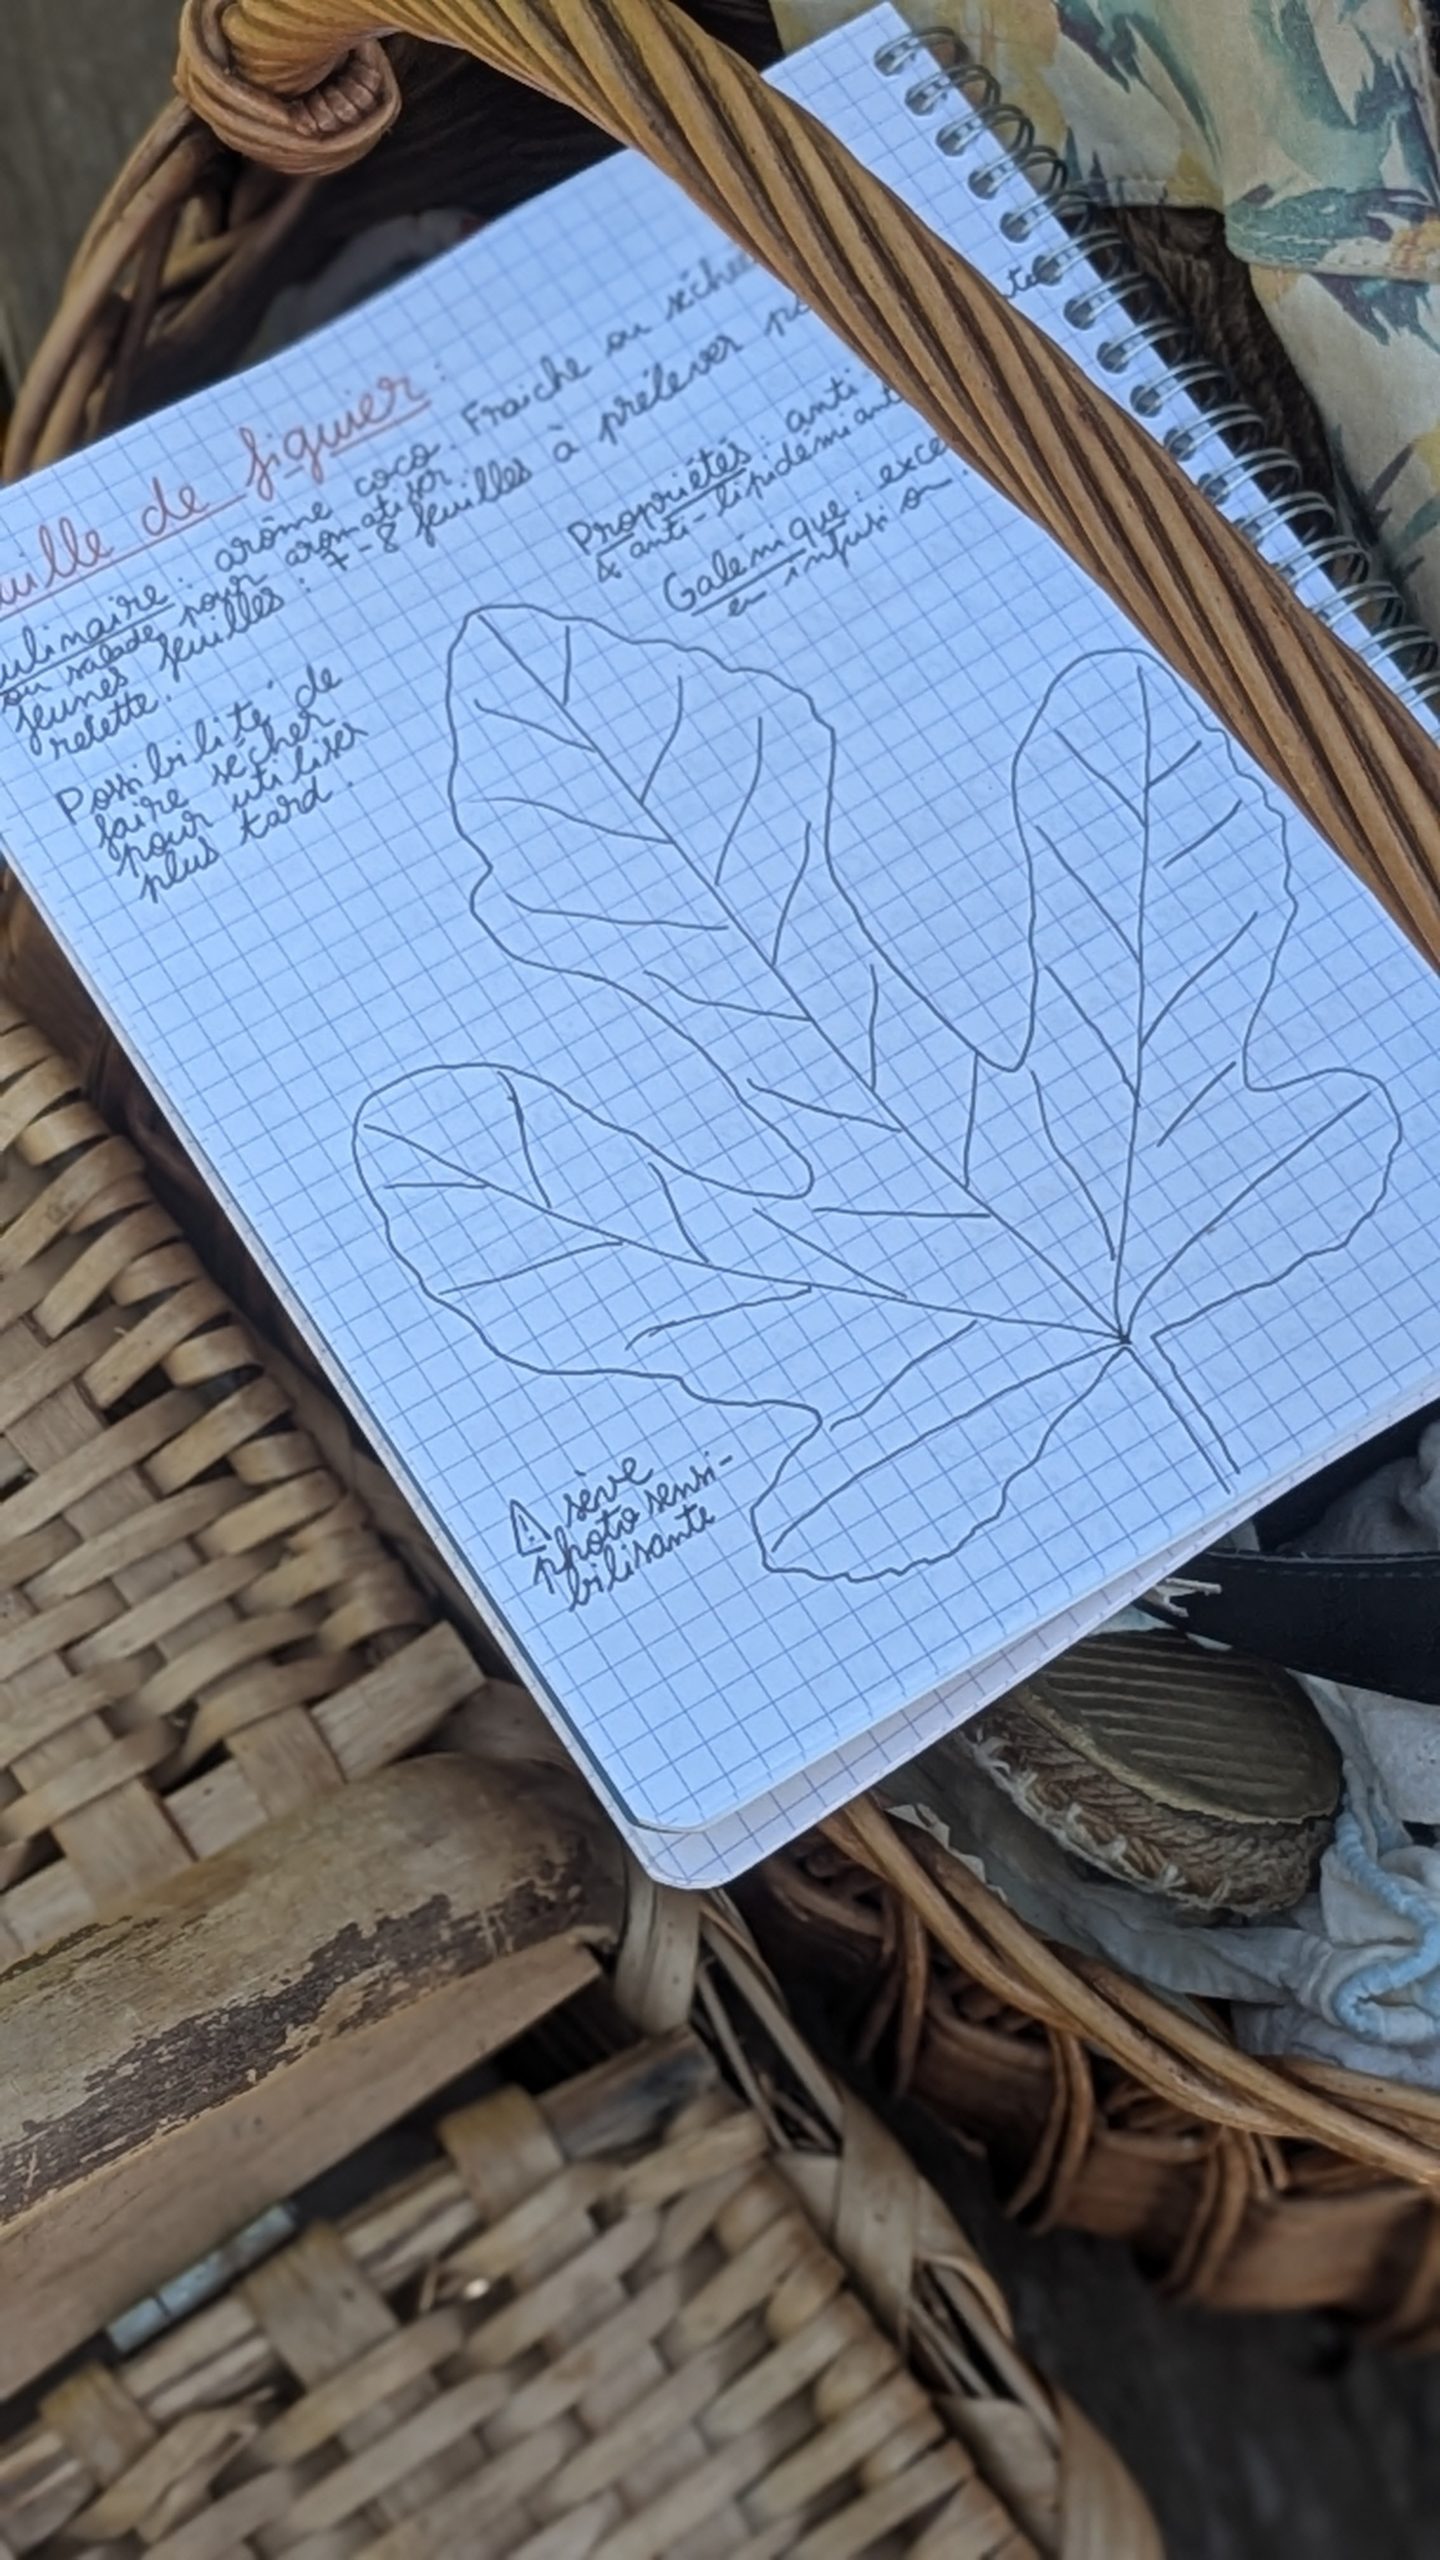 uille de figuier :
ulinaire : arôme coco. Fraiche ou séche
ou salade pour aromatiser.
jeunes feuilles : 7-8 feuilles à prélever po
recette.
Possibilité de
faire sécher
pour utiliser
plus tard.
Propriétés : anti
& anti-lipidémiant
Galénique : exce
en infusion.
⚠ sève
photosensi-
bilisante